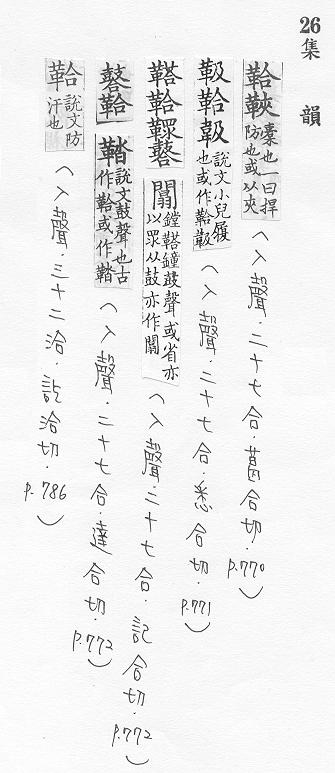 26
集韻
鞈鞅橐也一曰捍防也或从夾(入聲.二十七合.葛合切.p.770)
靸鞈㞕說文小兒履也或作鞈(入聲.二十七合.悉合切.p.771)
鞳鞈 鏜鞳鐘鼓聲或省亦以眔从鼓亦作闒(入聲.二十七合.託合切.p.772)
鞈 說文鼓聲也古作鞈或作(入聲.二十七合.達合切.p.772)
鞈說文防汗也(入聲.三十二洽.訖洽切.p.786)